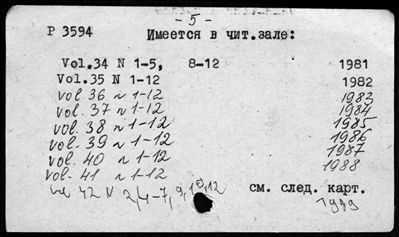 - 5 -
P 3594 Имеется в чит.зале:
Vol.34 N 1-5, 8-12 1981
Vol.35 N 1-12 1982
vol. 36 N 1-12 1983
vol. 37 N 1-12 1984
vol. 38 N 1-12 1985
vol. 39 N 1-12 1986
vol. 40 N 1-12 1987
vol. 41 N 1-12 1988
vol 42 N 2,4-7,9,10,12 см. след. карт.
1989